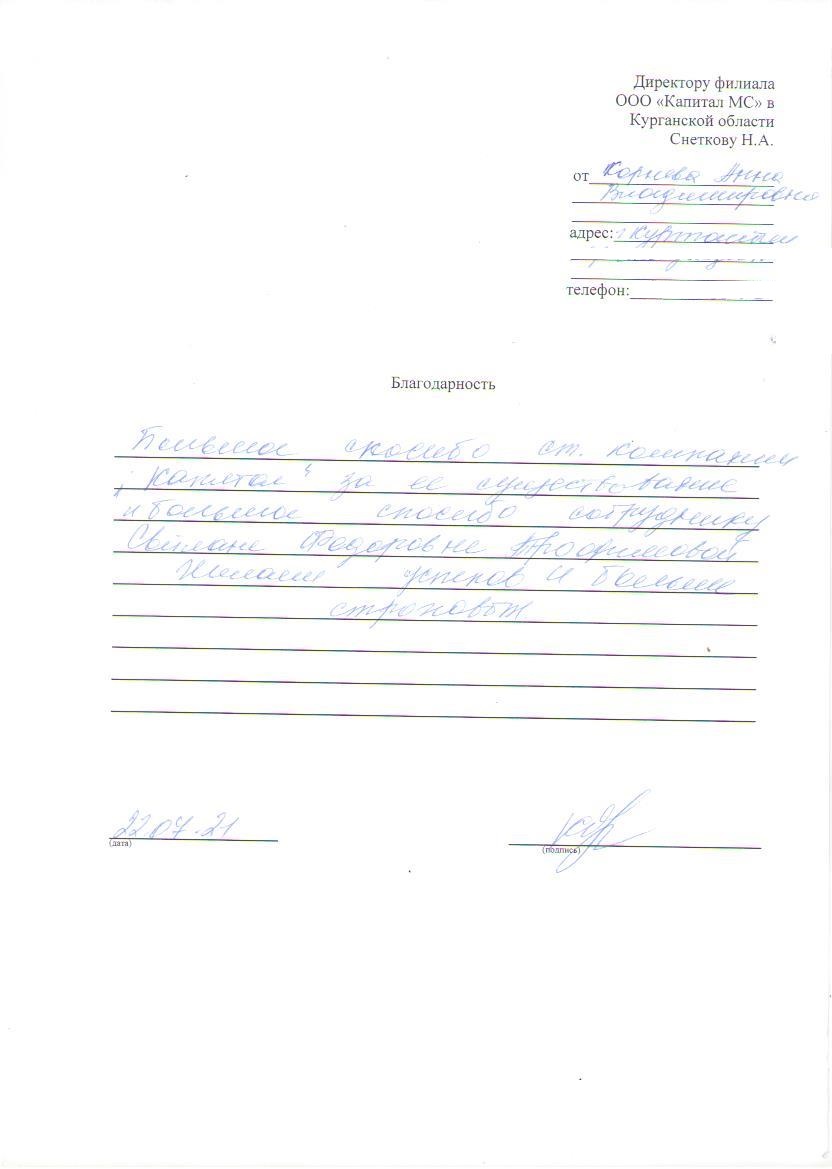 Директору филиала
ООО «Капитал МС» в
Курганской области
Снеткову Н.А.
от Корнева Анна
Владимировна
адрес: г Куртамыш
телефон:
Благодарность
Большое спасибо ст. компании
"Капитал" за ее существование
и большое спасибо сотруднику
Светлане Федоровне
Желаем успехов и больше
22.07.21
(дата)
(подпись)